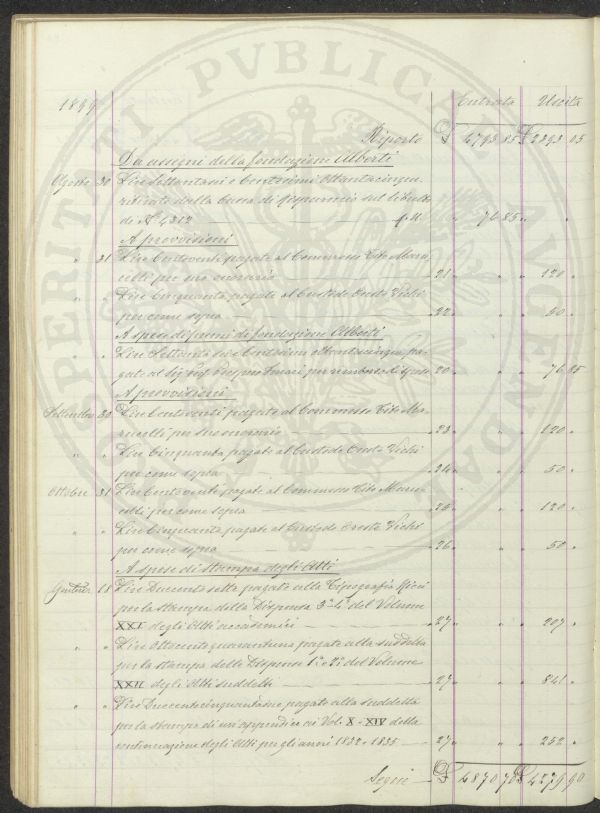 PROSPERITATI PVBLICAE AVGENDAE
1899 Entrata Uscita
Riporto £ 4793 85 £ 2393 05
Da assegni della fondazione Alberti
Agosto 30 Lire Settantasei e Centesimi Ottantacinque
ritirate dalla Cassa di Risparmio sul libretto
di N° 4312 76 85 "
A provvisioni
" 31 Lire Centoventi pagate al Commesso Tito
per suo onorario 21 " " 120 "
" " Lire Cinquanta pagate al Custode Oreste Vichi
per come sopra 22 " " 50 "
A spese di premi di fondazione Alberti
" " Lire Settanta sei e Centesimi Ottantacinque pa-
gate al per rimborso di spese 20 " " 76 85
A provvisioni
Settembre 30 Lire Centoventi pagate al Commesso Tito
per suo onorario 23 " " 120 "
" " Lire Cinquanta pagate al Custode Oreste Vichi
per come sopra 24 " " 50 "
Ottobre 31 Lire Centoventi pagate al Commesso Tito
per come sopra 25 " " 120 "
" " Lire Cinquanta pagate al Custode Oreste Vichi
per come sopra 26 " " 50 "
A spese di Stampa degli Atti
18 Lire Duecento sette pagate alla Tipografia Ricci
per la stampa della Dispensa 3a 4a del Volume
XXI degli Atti accademici 27 " " 207 "
" " Lire Ottocentoquarantuna pagate alla suddetta
per la stampa delle Dispense 1a e 2a del Volume
XXII degli Atti suddetti 27 " " 841 "
" " Lire Duecentocinquantadue pagate alla suddetta
per la stampa di un'appendice ai Vol: X - XIV della
continuazione degli Atti per gli anni 1832 e 1835 27 " " 252 "
Segue £ 4870 70 £ 4279 90